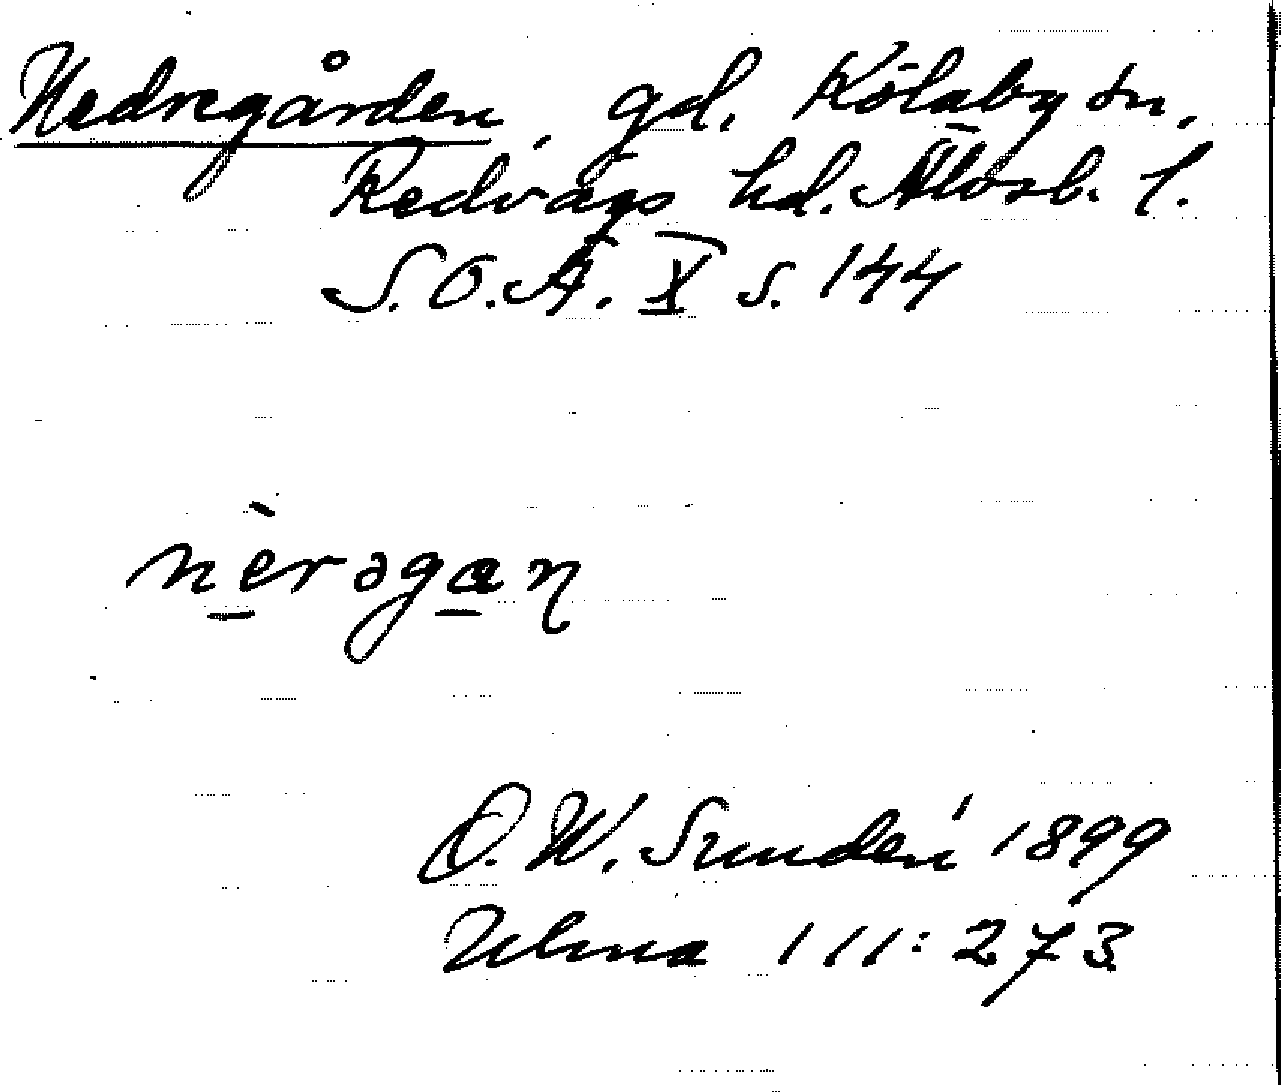 Nedregården, gd. Kölaby sn,
Redvägs hd. Älvsb. l.
S.O.Ä. X s. 144
nèrəgan
O. W. Sundén 1899
Ulma 111:273